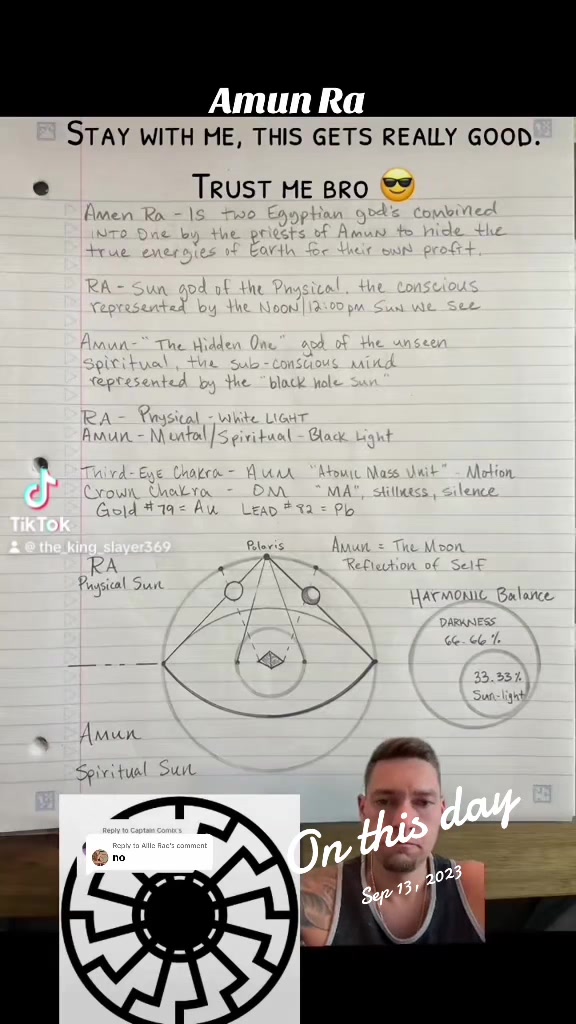 Amun Ra
STAY WITH ME, THIS GETS REALLY GOOD.
TRUST ME BRO 😎
Amen Ra - Is two Egyptian god's combined
INTO One by the priests of Amun to hide the
true energies of Earth for their own profit.
RA - Sun god of the Physical, the conscious
represented by the NOON/12:00pm Sun we see
Amun - "The Hidden One" god of the unseen
Spiritual, the sub-conscious mind
represented by the "black hole sun"
RA - Physical - White LIGHT
Amun - Mental/Spiritual - Black Light
Third-Eye Chakra - AUM "Atomic Mass Unit" - Motion
Crown Chakra - OM "MA", stillness, silence
Gold #79 = Au LEAD #82 = Pb
TikTok
@the_king_slayer369
Polaris
Amun = The Moon
Reflection of Self
RA
Physical Sun
HARMONIC Balance
DARKNESS
66.66%
33.33%
Sun-light
Amun
Spiritual Sun
Reply to Captain Comix's
Reply to Allie Rae's comment
no
On this day
Sep 13, 2023